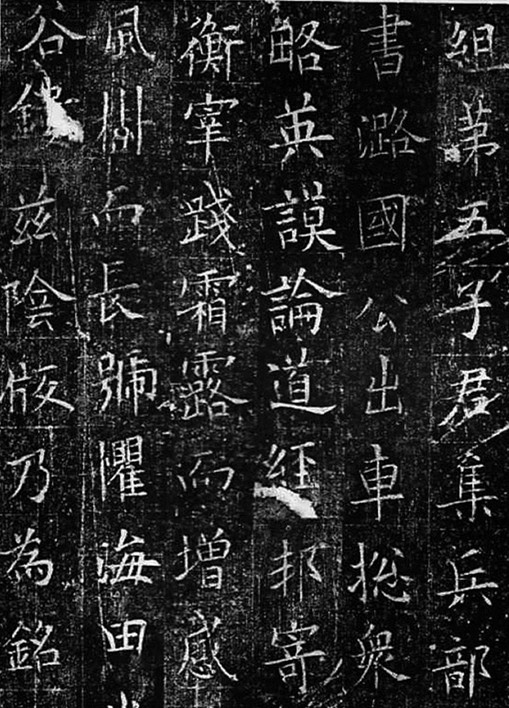 組第五子君集兵部
書潞國公出車揔衆
略英謨論道經邦寄
衡宰踐霜露而增感
風樹而長號懼海田
谷茲陰版乃為銘